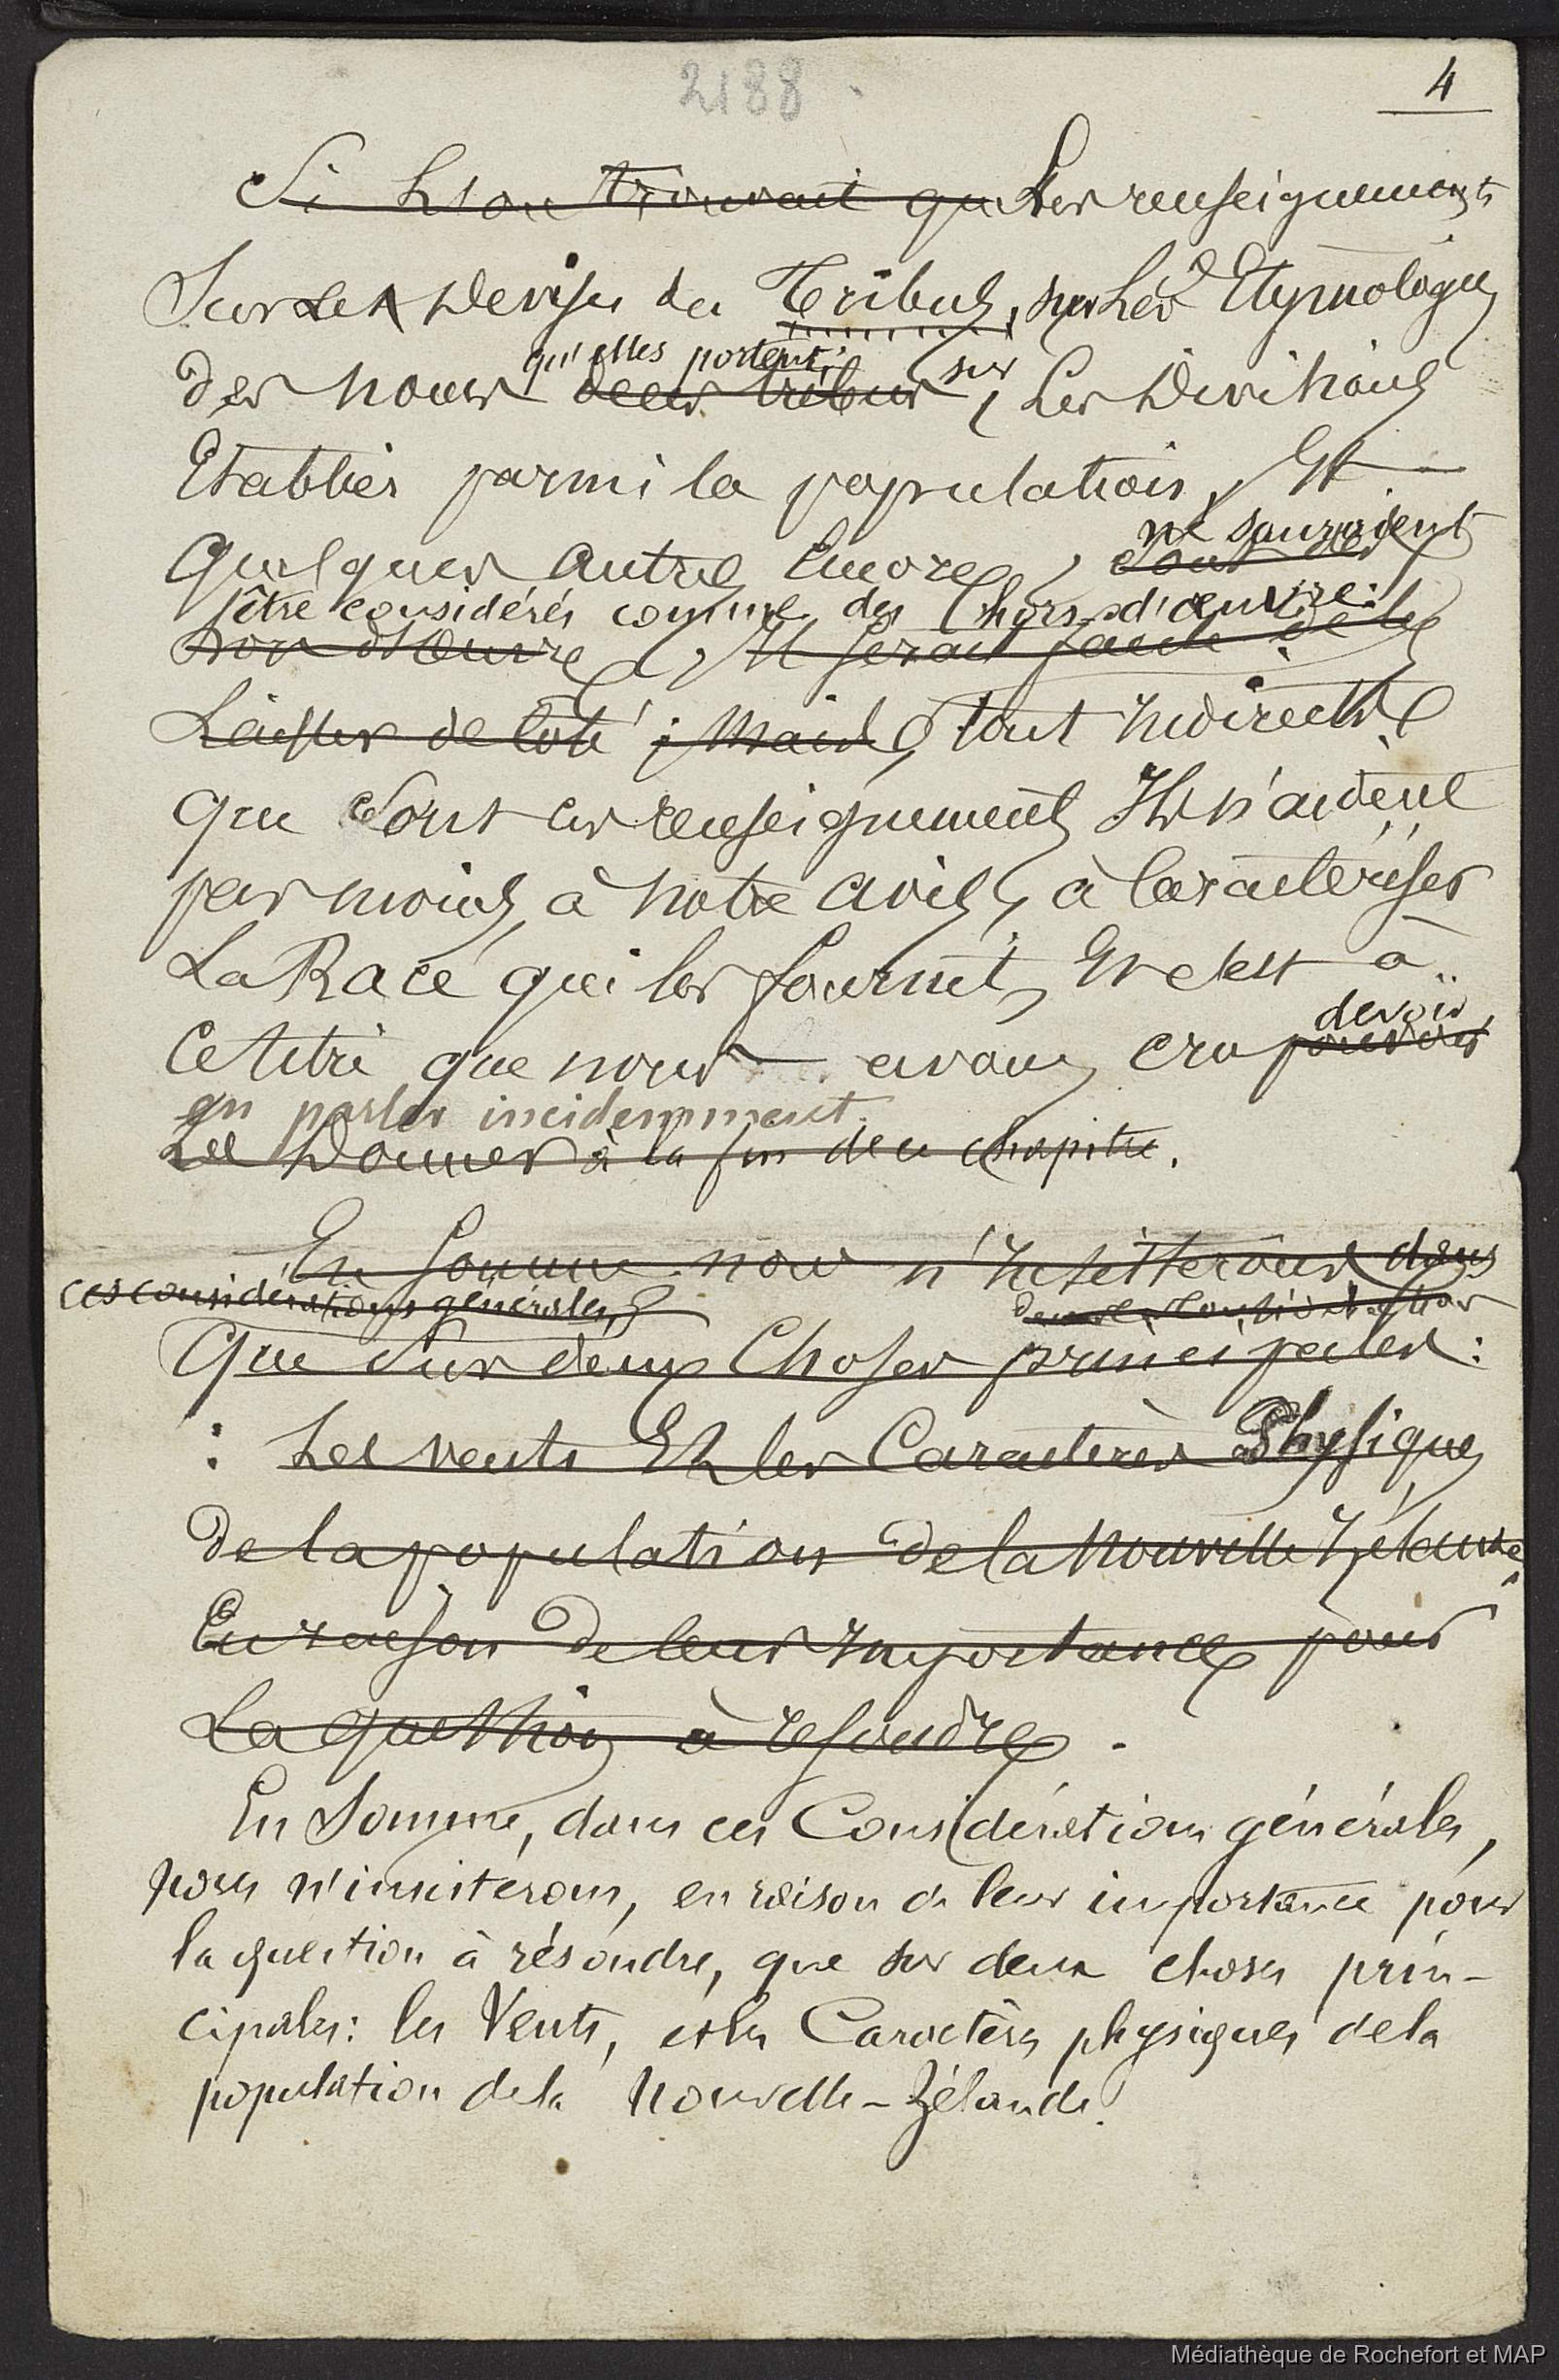 2188
4
Si L'on trouvait que Les renseignements
Sur Les Devises des Tribus, sur Les Etymologies
des noms deces tribus, sur Les Divisions
qu'elles portent
Etablies parmi la population, Et
Quelques autres Encore, sont des
ne sauraient
être considérés comme des hors-d'œuvre:
hors d'œuvre, Il serait facile de les
Laisser de Côté; Mais, tout Indirects
que sont ces renseignements Ils n'aident
pas moins, à notre avis, à Caractériser
La Race qui les fournit, Et c'est à
Ce titre que nous avons cru pouvoir
devoir
en parler incidemment.
Les Donner à la fin de ce chapitre.
En Somme nous n'Insisterons dans
ces considérations générales
Que Sur deux Choses principales:
: Les vents Et les Caractères Physiques
De la population de la Nouvelle Zélande
En raison De leur Importance pour
La question à résoudre.
En Somme, dans ces Considérations générales,
nous n'insisterons, en raison de leur importance pour
la question à résoudre, que sur deux choses prin-
cipales: les Vents, et les Caractères physiques de la
population de la Nouvelle-Zélande.
Médiathèque de Rochefort et MAP